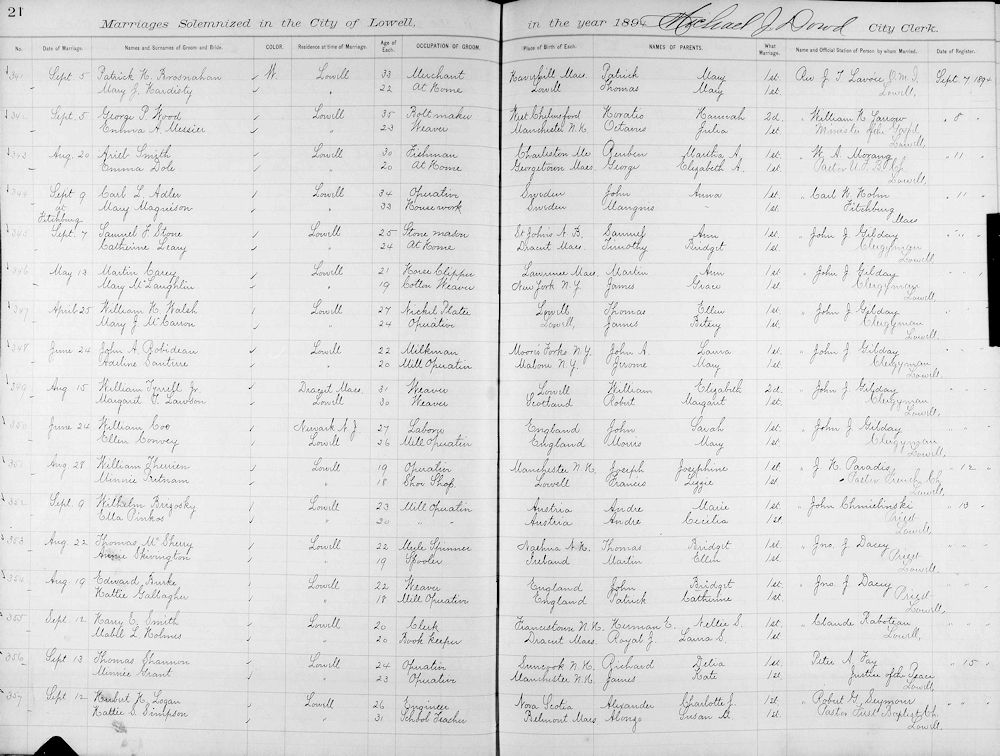 21
Marriages Solemnized in the City of Lowell, in the year 1894 Michael J. Dowd City Clerk.
No. Date of Marriage. Names and Surnames of Groom and Bride. COLOR. Residence at time of Marriage. Age of Each. OCCUPATION OF GROOM. Place of Birth of Each. NAMES OF PARENTS. What Marriage. Name and Official Station of Person by whom Married. Date of Register.
341 Sept. 5 Patrick H. Brosnahan W. Lowell 33 Merchant Haverhill Mass. Patrick Mary 1st. Rev J. T. Lavoie O.M.I. Sept. 7 1894
Mary J. Hardisty " 22 At Home Lowell Thomas Mary 1st. Lowell,
342 Sept. 5 George P. Wood Lowell 35 Bolt maker West Chelmsford Horatio Hannah 2d. " William H. Garrow " 8 "
Emma A. Messier " 23 Weaver Manchester N.H. Octavus Julia 1st. Minister of the Gospel
Lowell,
343 Aug. 20 Ariel Smith Lowell 30 Fishman Charleston Me Reuben Martha A. 1st. " W. A. Morang " 11 "
Emma Dole " 20 At Home Georgetown Mass. George Elizabeth A. 1st. Pastor
Lowell,
344 Sept 9 Carl L. Adler Lowell 34 Operative Sweden John Anna 1st. " Carl W. Holm " 11 "
at Mary Magnison " 33 Housework Sweden Mangnis - 1st. Fitchburg
Fitchburg Mass
345 Sept. 7 Samuel F. Stone Lowell 25 Stone mason St Johns N.B. Samuel Ann 1st. " John J. Gilday " " "
Catherine Leary " 24 At Home Dracut Mass. Timothy Bridget 1st. Clergyman
Lowell
346 May 13 Martin Carey Lowell 21 Horse Clipper Lawrence Mass. Martin Ann 1st. " John J. Gilday " "
Mary McLaughlin " 19 Cotton Weaver New York N.Y. James Grace 1st. Clergyman
Lowell,
347 April 25 William H. Walsh Lowell 27 Nickel Plater Lowell Thomas Ellen 1st. " John J. Gilday " "
Mary J. McCarron " 24 Operative Lowell, James Betsey 1st. Clergyman
Lowell,
348 June 24 John A. Robideau Lowell 22 Milkman Moores Forks N.Y. John A. Laura 1st. " John J. Gilday " "
Adeline " 20 Mill Operative Malone N.Y. Jerome Mary 1st. Clergyman
Lowell,
349 Aug. 15 William Tyrrell Jr. Dracut Mass. 31 Weaver Lowell William Elizabeth 2d. " John J. Gilday " "
Margaret T. Lawson Lowell 30 Weaver Scotland Robert Margaret 1st. Clergyman
Lowell,
350 June 24 William Coo Newark N.J. 27 Laborer England John Sarah 1st. " John J. Gilday " "
Ellen Convey Lowell 26 Mill Operative England Morris Mary 1st. Clergyman
Lowell,
351 Aug. 28 William Therrien Lowell 19 Operative Manchester N.H. Joseph Josephine 1st. " J. H. Paradis " 12 "
Minnie Putnam " 18 Shoe Shop Lowell Francis Lizzie 1st. " Pastor French Ch.
Lowell
352 Sept. 9 Wilhelm Brezosky Lowell 23 Mill Operative Austria Andre Marie 1st. " John Chmielinski " 13 "
Ella Pinkos " 20 " " Austria Andre Cecilia 1st. Priest
Lowell,
353 Aug. 22 Thomas McSherry Lowell 22 Mule Spinner Nashua N.H. Thomas Bridget 1st. " Jno. J. Dacey " "
Annie Skivington " 19 Spooler Ireland Martin Ellen 1st. Priest
Lowell,
354 Aug. 19 Edward Burke Lowell 22 Weaver England John Bridget 1st. " Jno. J. Dacey " "
Hattie Gallagher " 18 Mill Operative England Patrick Catherine 1st. Priest
Lowell,
355 Sept. 12 Harry E. Smith Lowell 20 Clerk Francestown N.H. Herman C. Nellie S. 1st. " Claude Raboteau " "
Mable L. Holmes " 20 Book keeper Dracut Mass. Royal J. Laura S. 1st. Lowell,
356 Sept 13 Thomas Shannon Lowell 24 Operative Suncook N.H. Richard Delia 1st. Peter A. Fay " 15 "
Minnie Grant " 23 Operative Manchester N.H. James Kate 1st. Justice of the Peace
Lowell,
357 Sept 12 Hubert H. Logan Lowell 26 Engineer Nova Scotia Alexander Charlotte J. 1st. Robert G. Seymour " "
Hattie S. Simpson " 31 School Teacher Belmont Mass. Alonzo Susan G. 1st. Pastor First Baptist Ch.
Lowell,